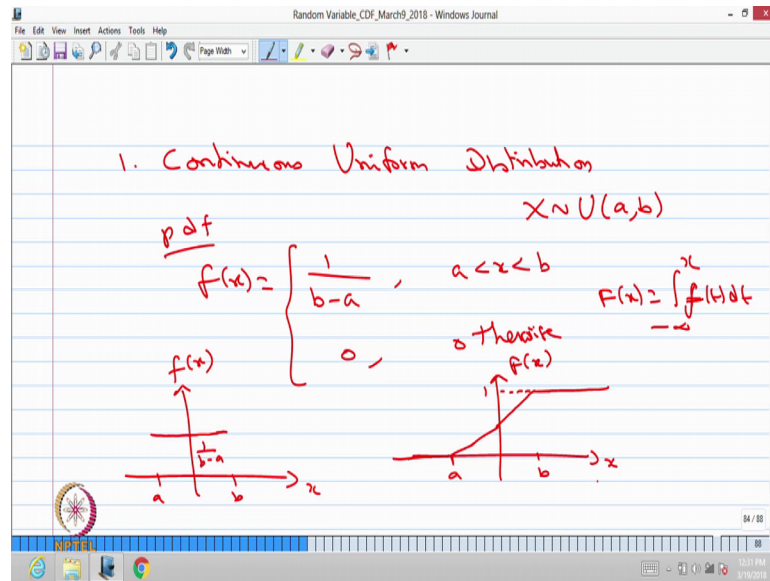 Random Variable_CDF_March9_2018 - Windows Journal
File Edit View Insert Actions Tools Help
Page Width
1. Continuous Uniform Distribution
X ~ U(a,b)
pdf
f(x) = { 1/(b-a) , a < x < b
0 , otherwise
F(x) = ∫_{-∞}^{x} f(t) dt
f(x)
1/(b-a)
a b x
F(x)
1
a b x
84 / 88
NPTEL
88
12:31 PM
3/19/2018